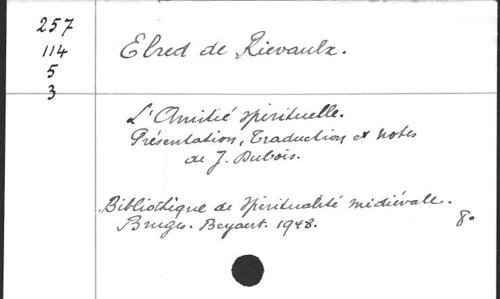 257
114
5
3
Elred de Rievaulx.
L'Amitié spirituelle.
Présentation, Traduction et notes
de J. Dubois.
Bibliothèque de Spiritualité médiévale.
Bruges. Beyaert. 1948.
8o